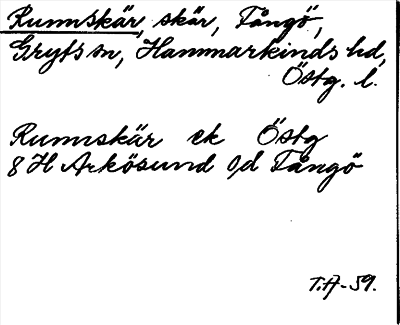 Rumnskär, skär, Fångö,
Gryts sn, Hammarkinds hd,
Östg. l.
Rumnskär ek Östg
8 H Arkösund o/d Fångö
T.A-59.